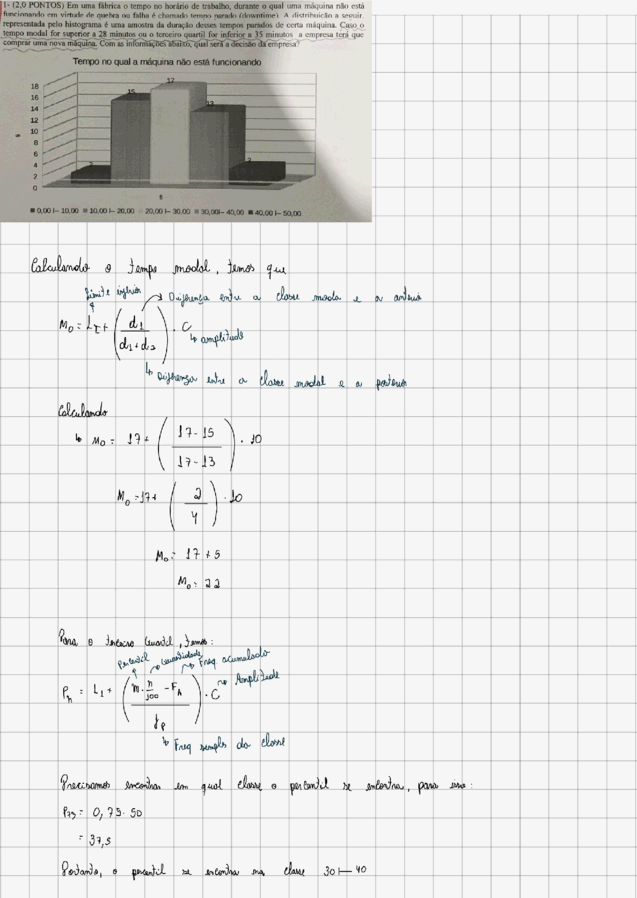 1- (2,0 PONTOS) Em uma fábrica o tempo no horário de trabalho, durante o qual uma máquina não está
funcionando em virtude de quebra ou falha é chamado tempo parado (downtime). A distribuição a seguir,
representada pelo histograma é uma amostra da duração desses tempos parados de certa máquina. Caso o
tempo modal for superior a 28 minutos ou o terceiro quartil for inferior a 35 minutos a empresa terá que
comprar uma nova máquina. Com as informações abaixo, qual será a decisão da empresa?
Tempo no qual a máquina não está funcionando
18
16
14
12
10
8
6
4
2
0
15
17
13
0,00 |– 10,00 10,00 |– 20,00 20,00 |– 30,00 30,00|– 40,00 40,00 |– 50,00
Calculando o tempo modal, temos que
Limite inferior
Diferença entre a classe moda e a anterior
Mo = LI + (d1 / d1 + d2) · C
amplitude
Diferença entre a classe modal e a posterior
Calculando
Mo = 17 + (17 - 15 / 17 - 13) · 10
Mo = 17 + (2 / 4) · 10
Mo = 17 + 5
Mo = 22
Para o terceiro Quartil, temos:
Percentil Quantidade Freq acumulado
Amplitude
Pn = L1 + (m · n/100 - FA / fp) · C
Freq simples da classe
Precisamos encontrar em qual classe o percentil se encontra, para isso:
P75 = 0,75 · 50
= 37,5
Portanto, o percentil se encontra na classe 30 |— 40